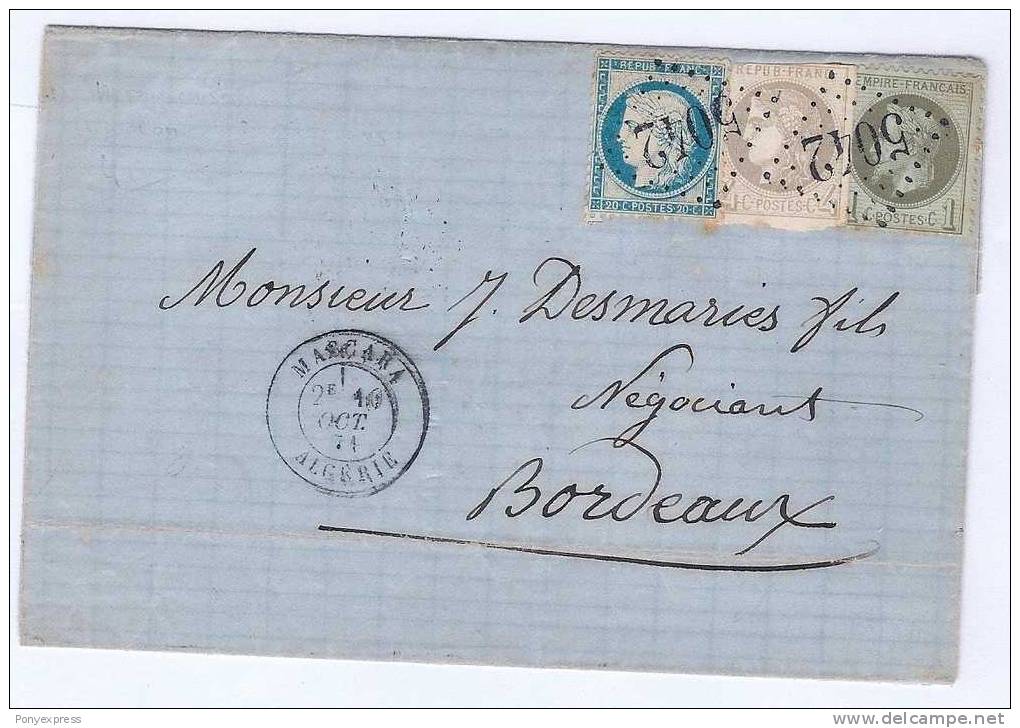 REPUB·FRANC
20·C·POSTES·20·C·
REPUB·FRANC
C·POSTES·C
EMPIRE·FRANÇAIS
1 C·POSTES·C 1
5042
5042
Monsieur J. Desmaries fils
Négociant
Bordeaux
MASCARA
2E 10
OCT.
71
ALGÉRIE
Ponyexpress
www.delcampe.net